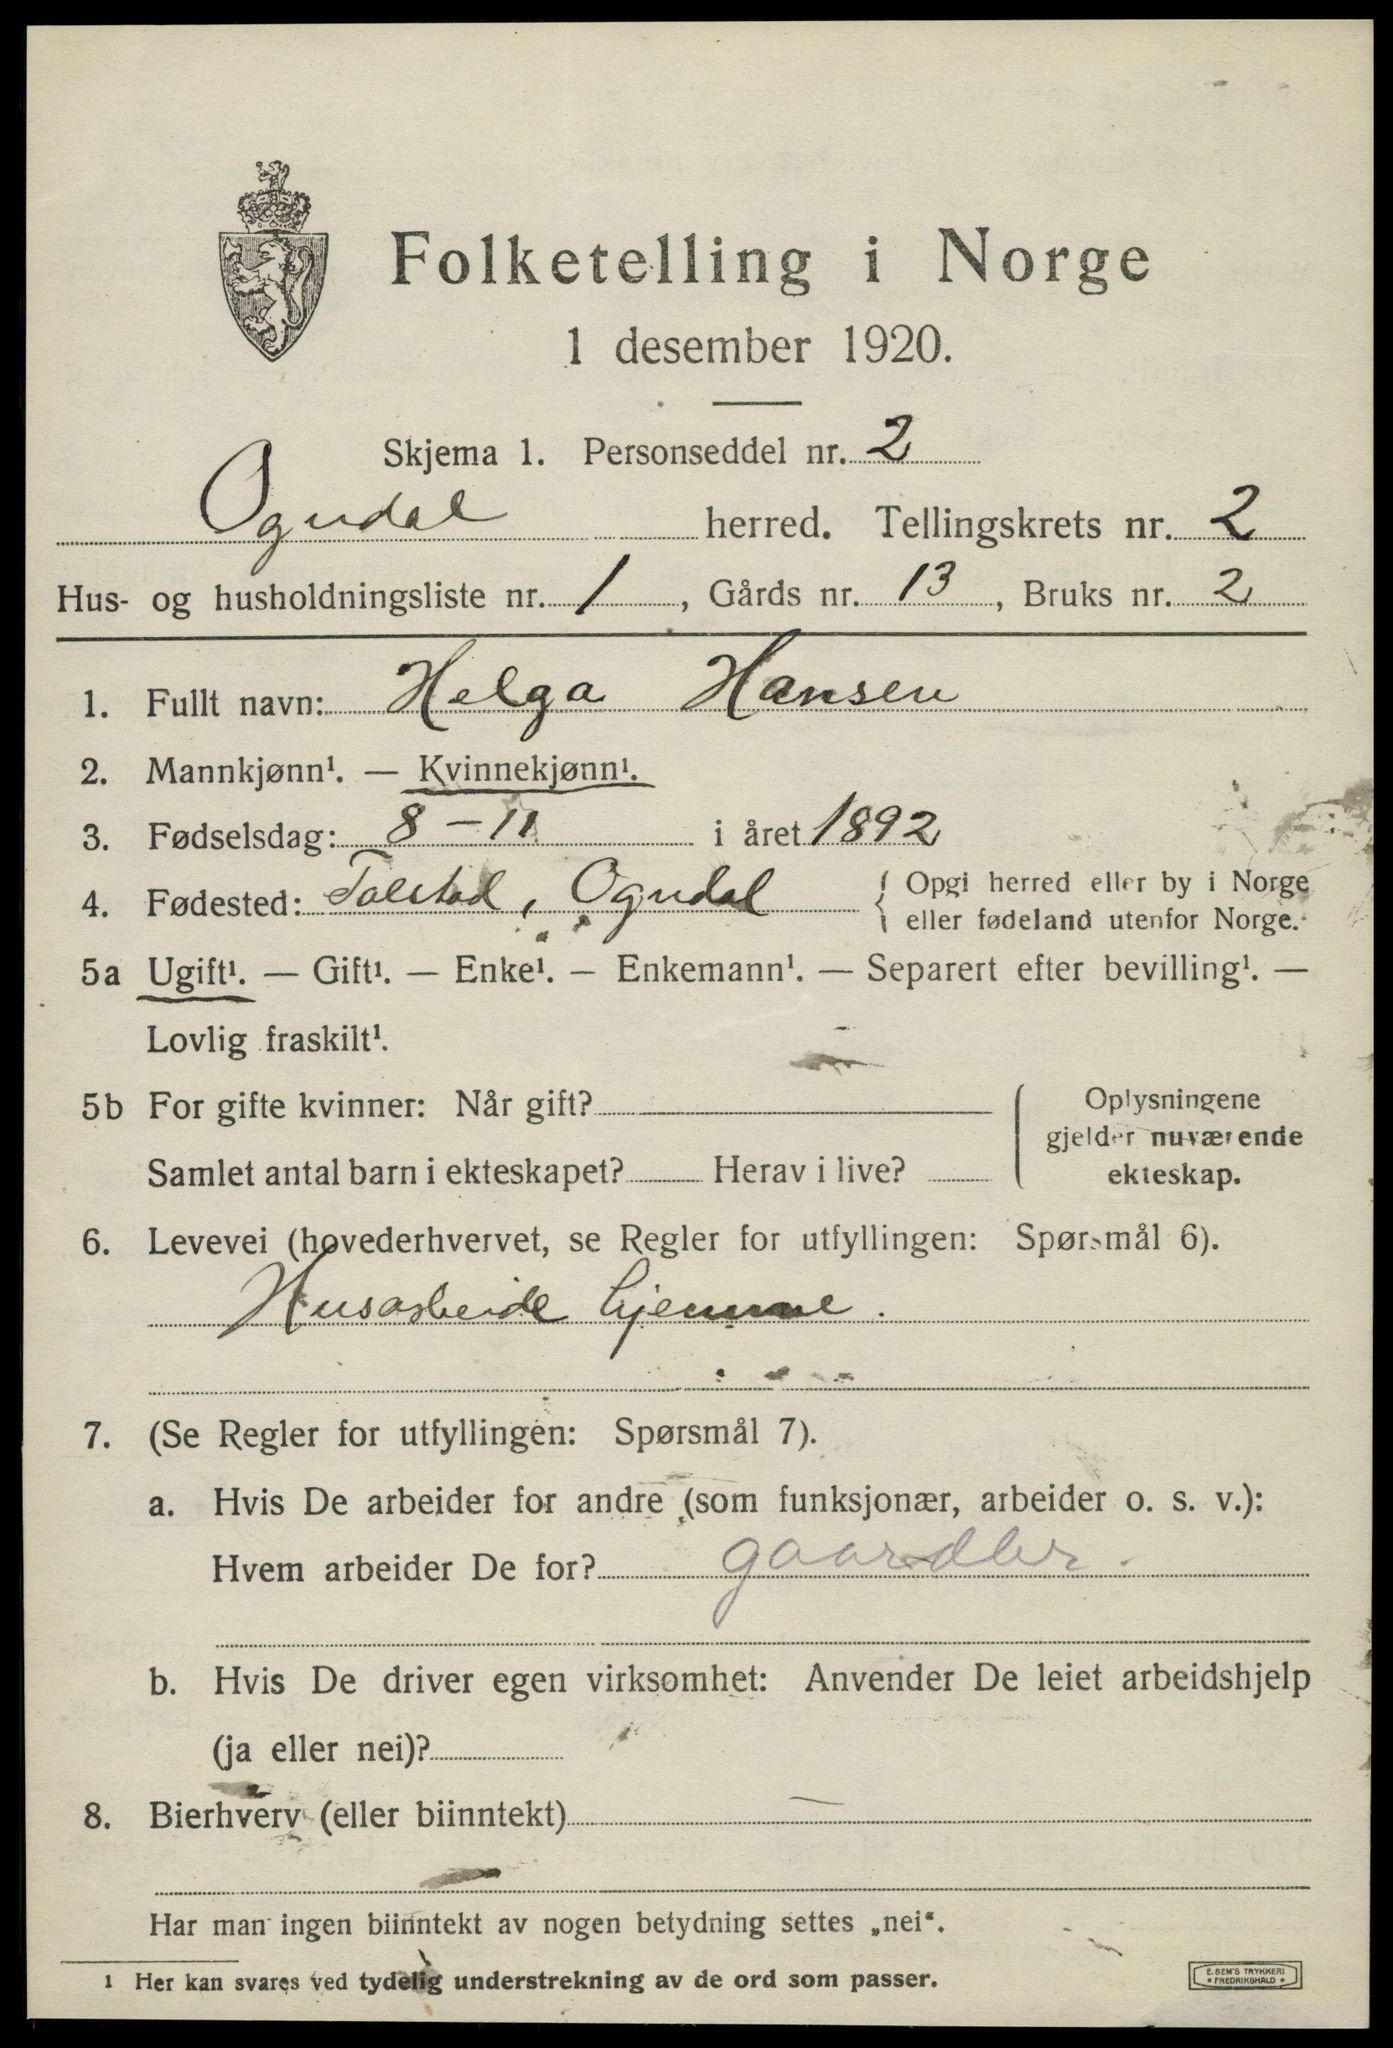 Folketelling i Norge
1 desember 1920.
Skjema 1. Personseddel nr. 2
Ogndal herred. Tellingskrets nr. 2
Hus- og husholdningsliste nr. 1, Gårds nr. 13, Bruks nr. 2
1. Fullt navn: Helga Hansen
2. Mannkjønn¹. — Kvinnekjønn¹.
3. Fødselsdag: 8 – 11 i året 1892
4. Fødested: Talstad, Ogndal { Opgi herred eller by i Norge
eller fødeland utenfor Norge.
5a Ugift¹. — Gift¹. — Enke¹. — Enkemann¹. — Separert efter bevilling¹. —
Lovlig fraskilt¹.
5b For gifte kvinner: Når gift?
Samlet antal barn i ekteskapet? Herav i live?
Oplysningene
gjelder nuværende
ekteskap.
6. Levevei (hovederhvervet, se Regler for utfyllingen: Spørsmål 6).
Husarbeide hjemme.
7. (Se Regler for utfyllingen: Spørsmål 7).
a. Hvis De arbeider for andre (som funksjonær, arbeider o. s. v.):
Hvem arbeider De for? gaardbr.
b. Hvis De driver egen virksomhet: Anvender De leiet arbeidshjelp
(ja eller nei)?
8. Bierhverv (eller biinntekt) —
Har man ingen biinntekt av nogen betydning settes „nei“.
1 Her kan svares ved tydelig understrekning av de ord som passer.
E. SEM'S TRYKKERI
• FREDRIKSHALD •